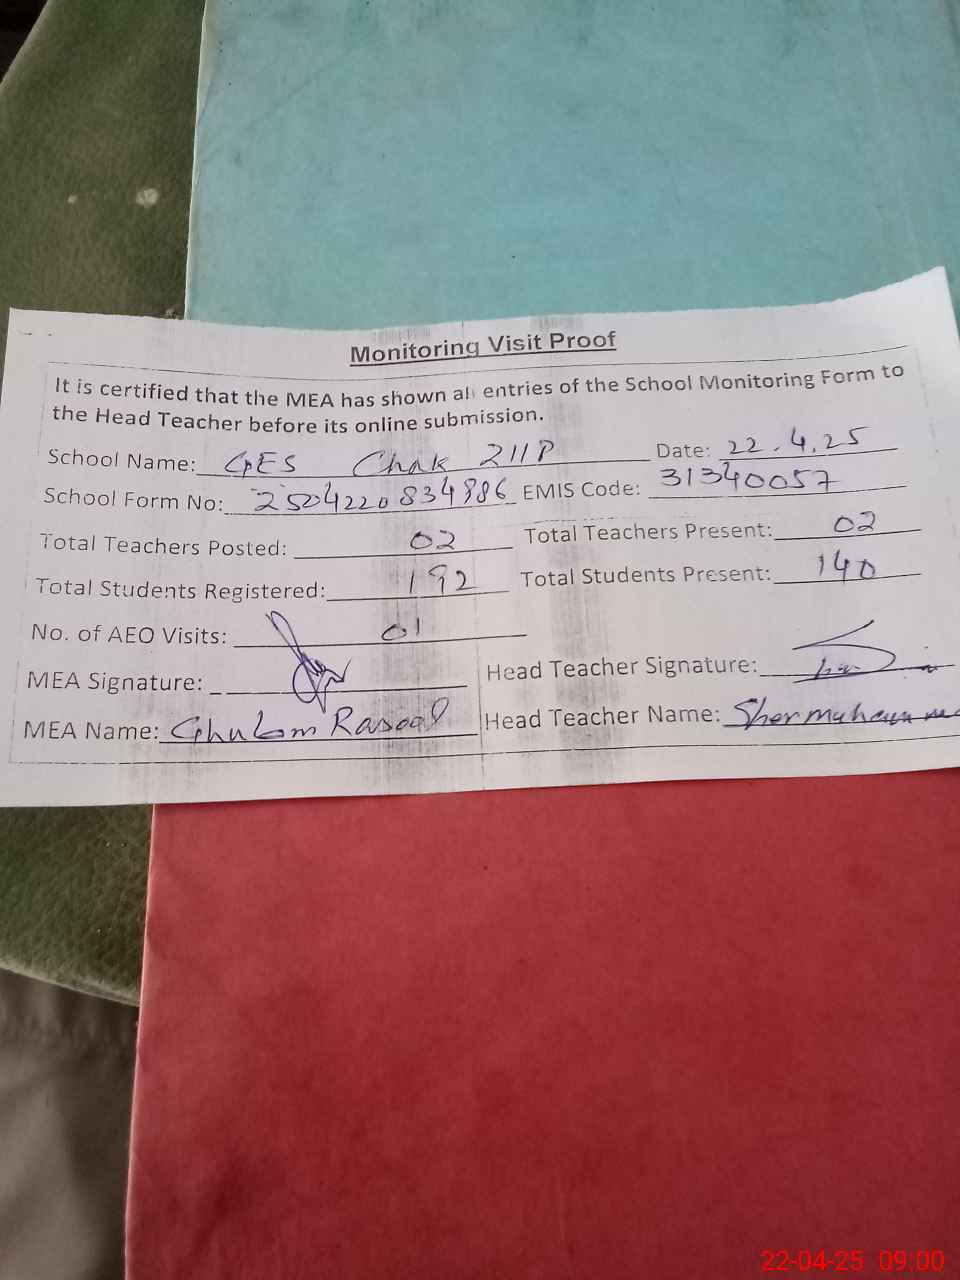 Monitoring Visit Proof
It is certified that the MEA has shown all entries of the School Monitoring Form to
the Head Teacher before its online submission.
School Name: GES Chak 211P Date: 22.4.25
School Form No: 2504220834886 EMIS Code: 31340057
Total Teachers Posted: 02 Total Teachers Present: 02
Total Students Registered: 192 Total Students Present: 140
No. of AEO Visits: 01
MEA Signature: Head Teacher Signature:
MEA Name: Ghulam Rasool Head Teacher Name:
22-04-25 09:00